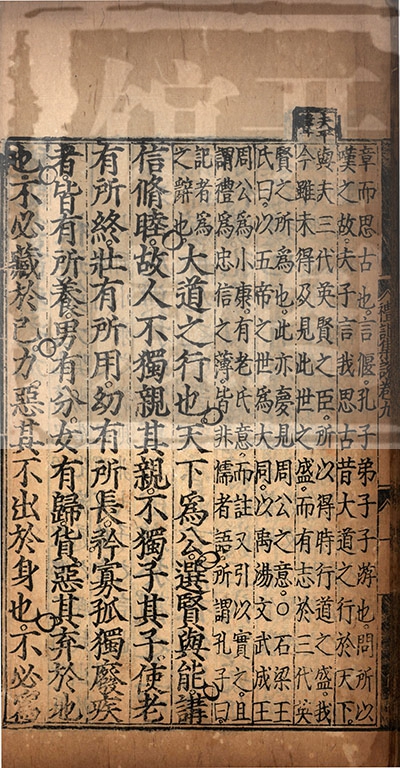 章而思古也。言偃孔子弟子子游也。問所以
嘆之故。夫子言我思古昔大道之行於天下。
與夫三代英賢之臣。所以得時行道之盛。我
今雖未得及見此世之盛。而有志於三代英
賢之所爲也。此亦夢見周公之意。○石梁王
氏曰。以五帝之世爲大同。以禹湯文武成王
周公爲小康。有老氏意。而註又引以實之。且
謂禮爲忠信之薄。皆非儒者語。所謂孔子曰
記者爲
之辭也
大道之行也。天下爲公。選賢與能。講
信脩睦。故人不獨親其親。不獨子其子。使老
有所終。壯有所用。幼有所長。矜寡孤獨廢疾
者。皆有所養。男有分。女有歸。貨惡其弃於地
也。不必藏於己。力惡其不出於身也。不必爲